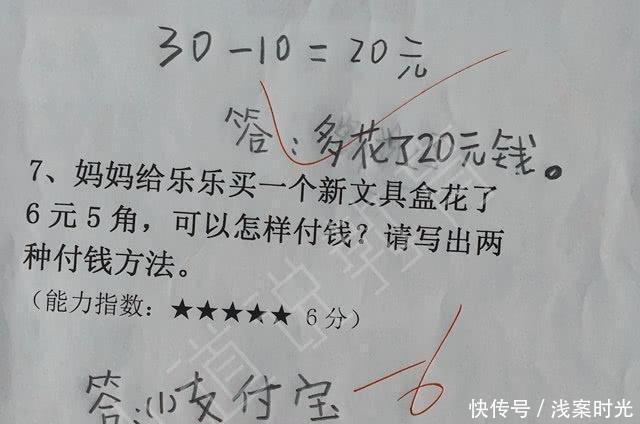 30-10=20元
答:多花了20元钱。
7、妈妈给乐乐买一个新文具盒花了
6元5角，可以怎样付钱？请写出两
种付钱方法。
（能力指数：★★★★★ 6分）
答:(1)支付宝 -6
快传号／浅案时光